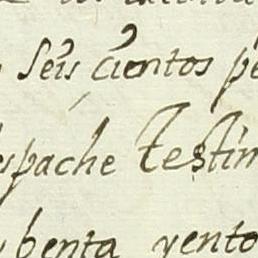 seis cientos pe
spache testim
benta yento